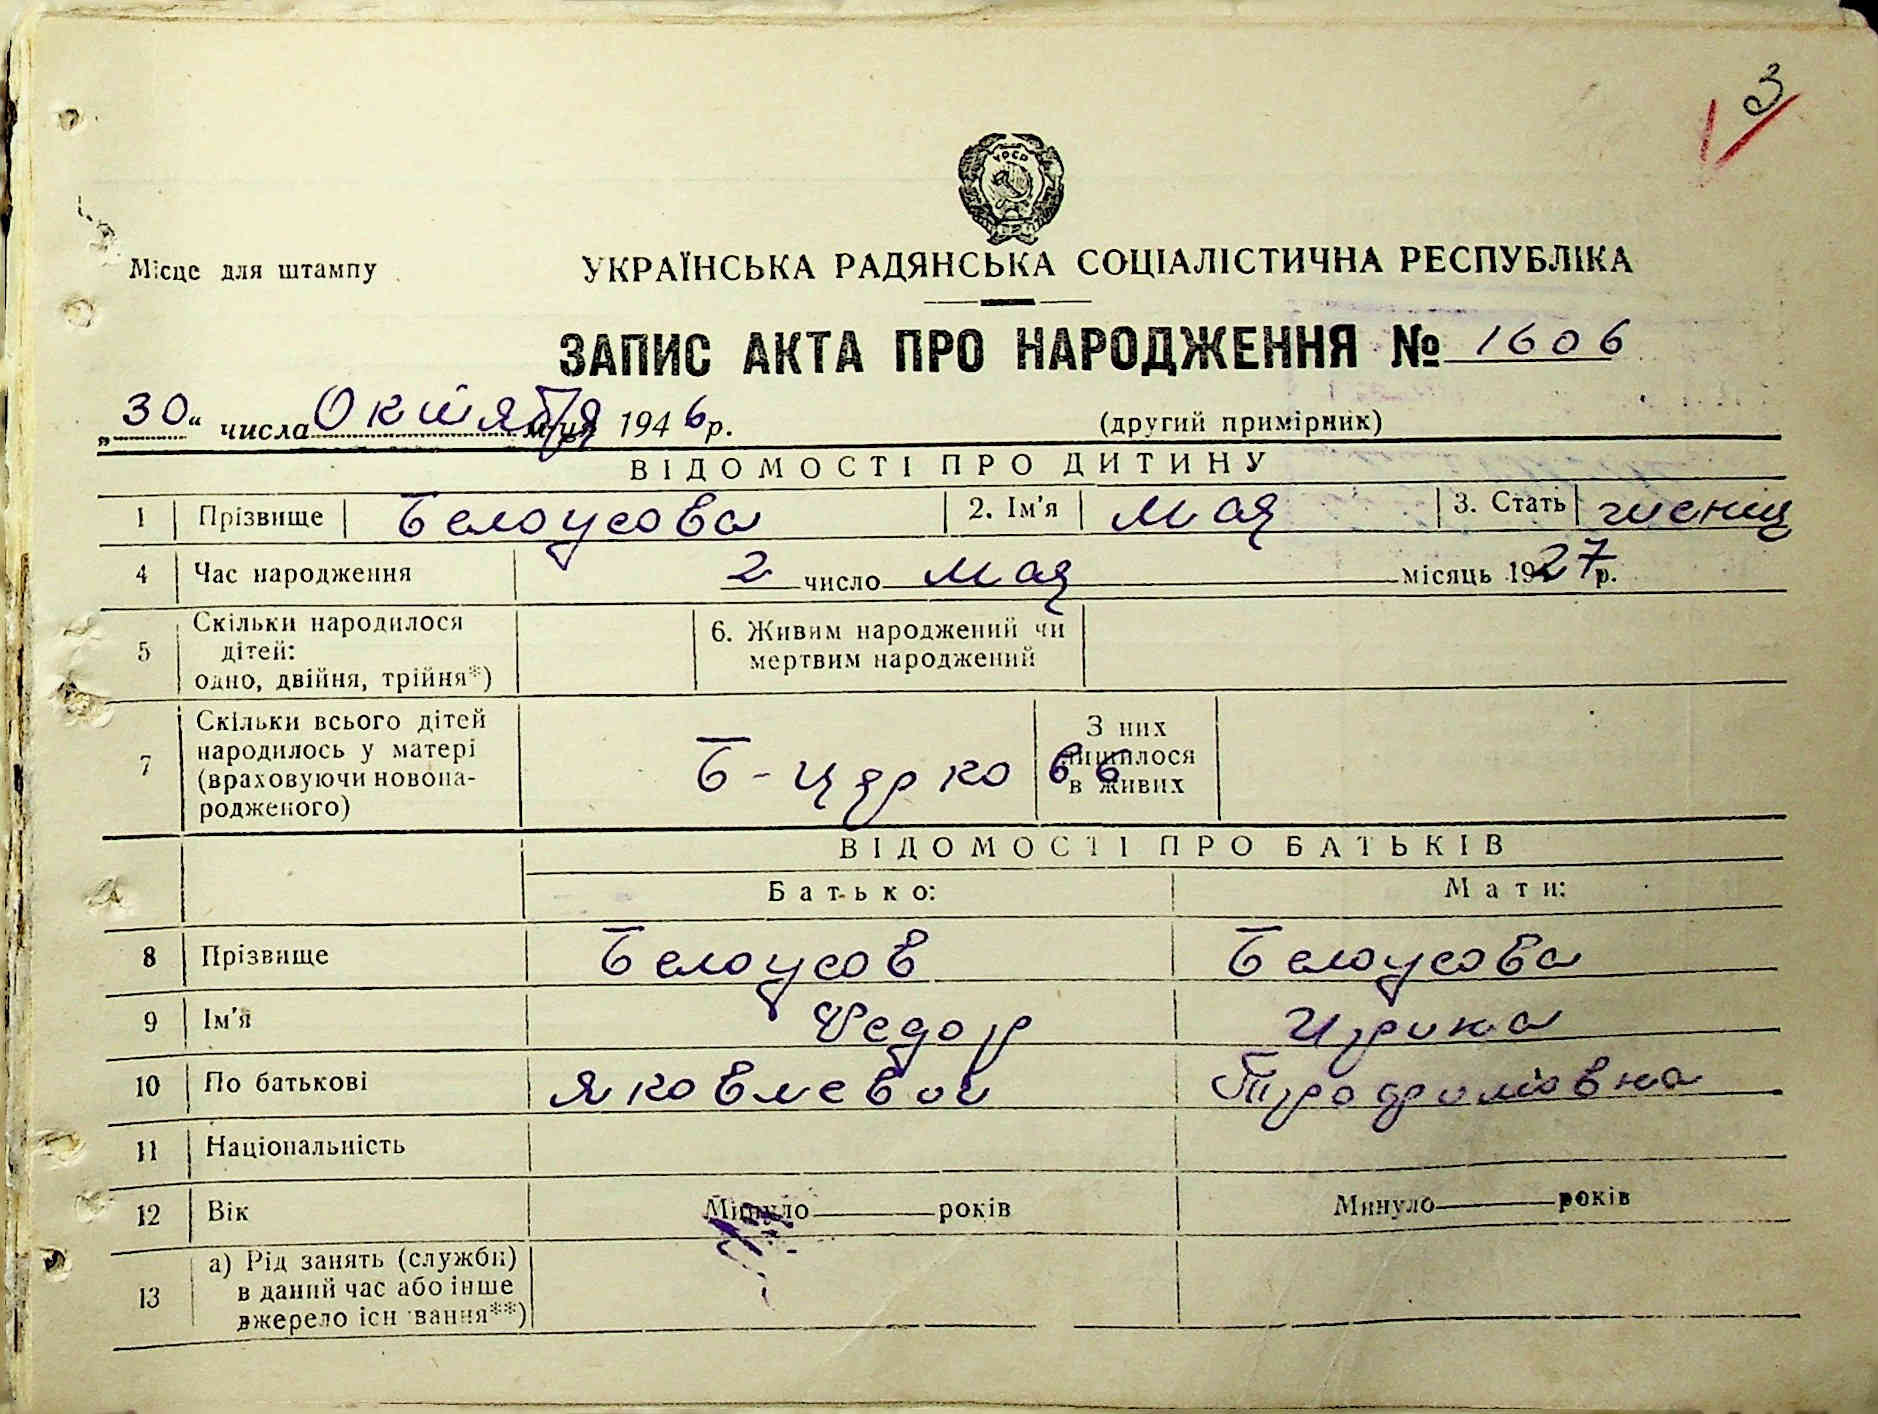 3
УРСР
Місце для штампу
УКРАЇНСЬКА РАДЯНСЬКА СОЦІАЛІСТИЧНА РЕСПУБЛІКА
ЗАПИС АКТА ПРО НАРОДЖЕННЯ № 1606
„30“ числа Октября м-ця 1946 р. (другий примірник)
ВІДОМОСТІ ПРО ДИТИНУ
1 Прізвище Белоусова 2. Ім'я Мая 3. Стать женщ
4 Час народження 2 число Мая місяць 1927 р.
5 Скільки народилося дітей: одно, двійня, трійня*) 6. Живим народжений чи мертвим народжений
7 Скільки всього дітей народилось у матері (враховуючи новонародженого) Б-Церковь З них лишилося в живих
ВІДОМОСТІ ПРО БАТЬКІВ
Батько: Мати:
8 Прізвище Белоусов Белоусова
9 Ім'я Федор Ирина
10 По батькові Яковлевич
11 Національність
12 Вік Минуло років Минуло років
13 а) Рід занять (служби) в даний час або інше джерело існування**)